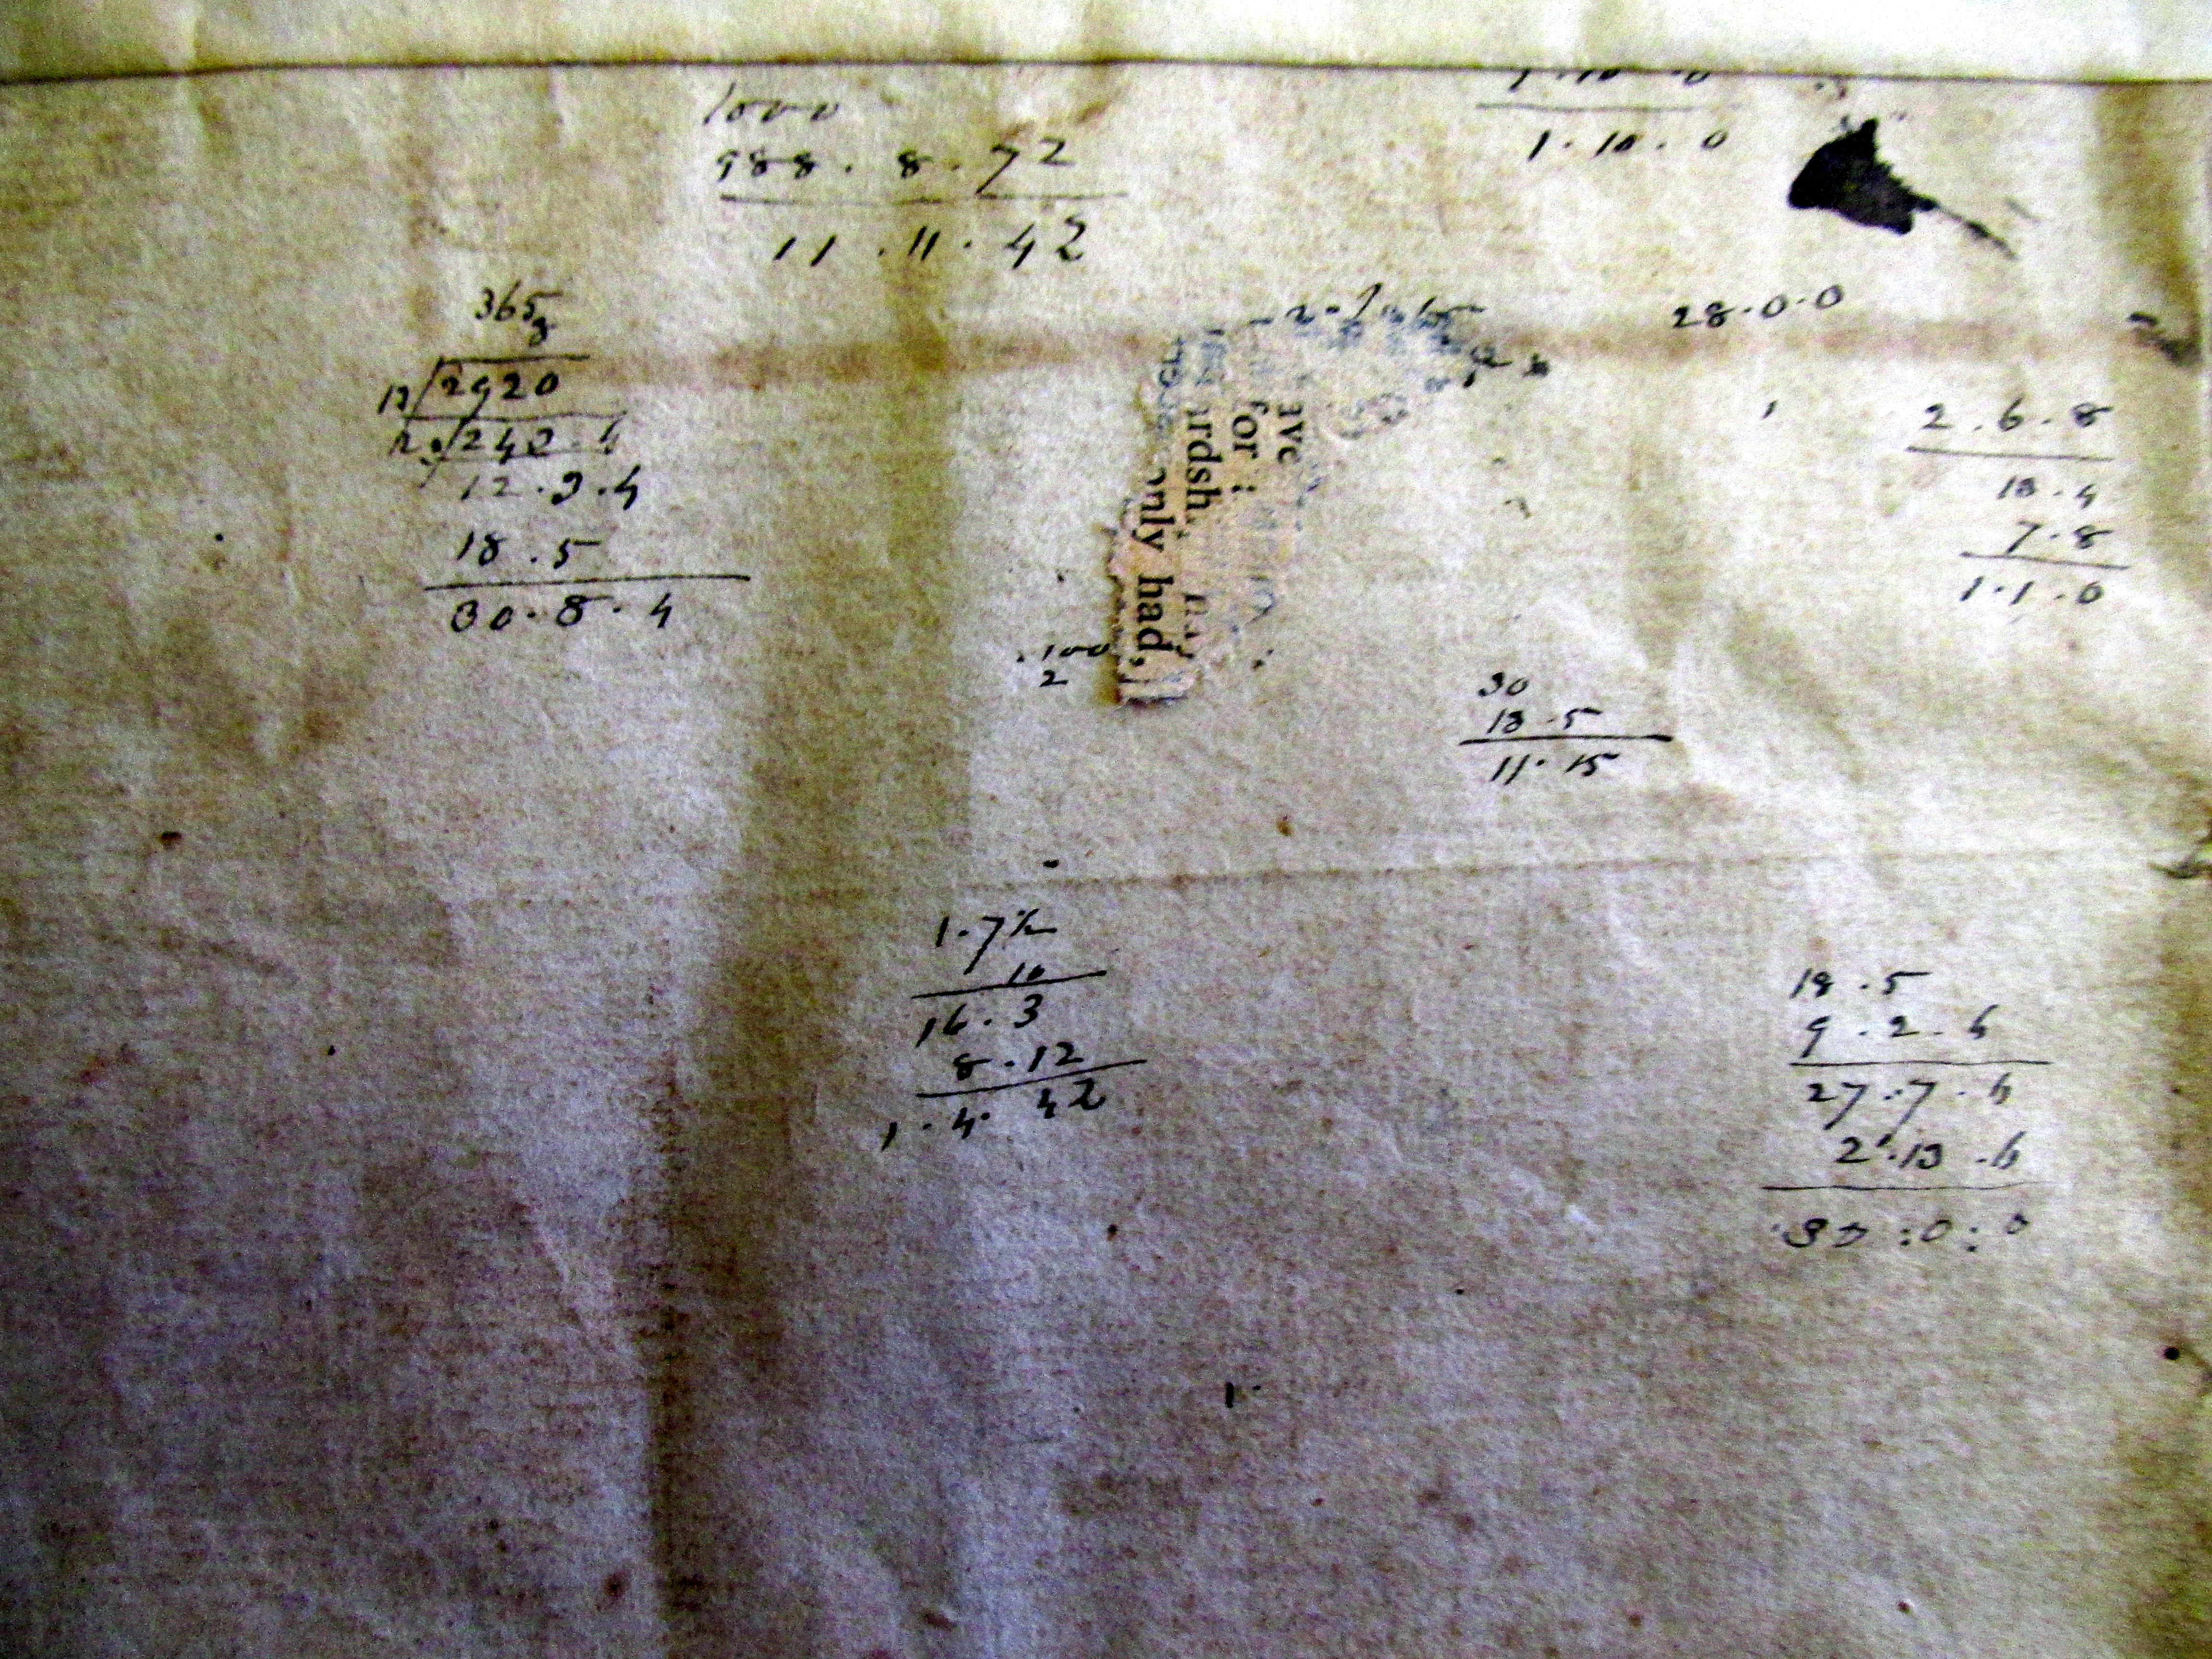 1000
988 . 8 . 72
11 . 11 . 42
1 . 10 . 0
365
8
12 2920
2 . 240 . 4
12 . 3 . 4
18 . 5
30 . 8 . 4
28 . 0 . 0
2 . 6 . 8
13 . 4
7 . 8
1 . 1 . 0
ave
for
rdsh
only had,
100
2
30
18 . 5
11 . 15
1 . 7½
10
16 . 3
8 . 1½
1 . 4 . 4½
18 . 5
9 . 2 . 6
27 . 7 . 6
2 . 13 . 6
30 : 0 : 0